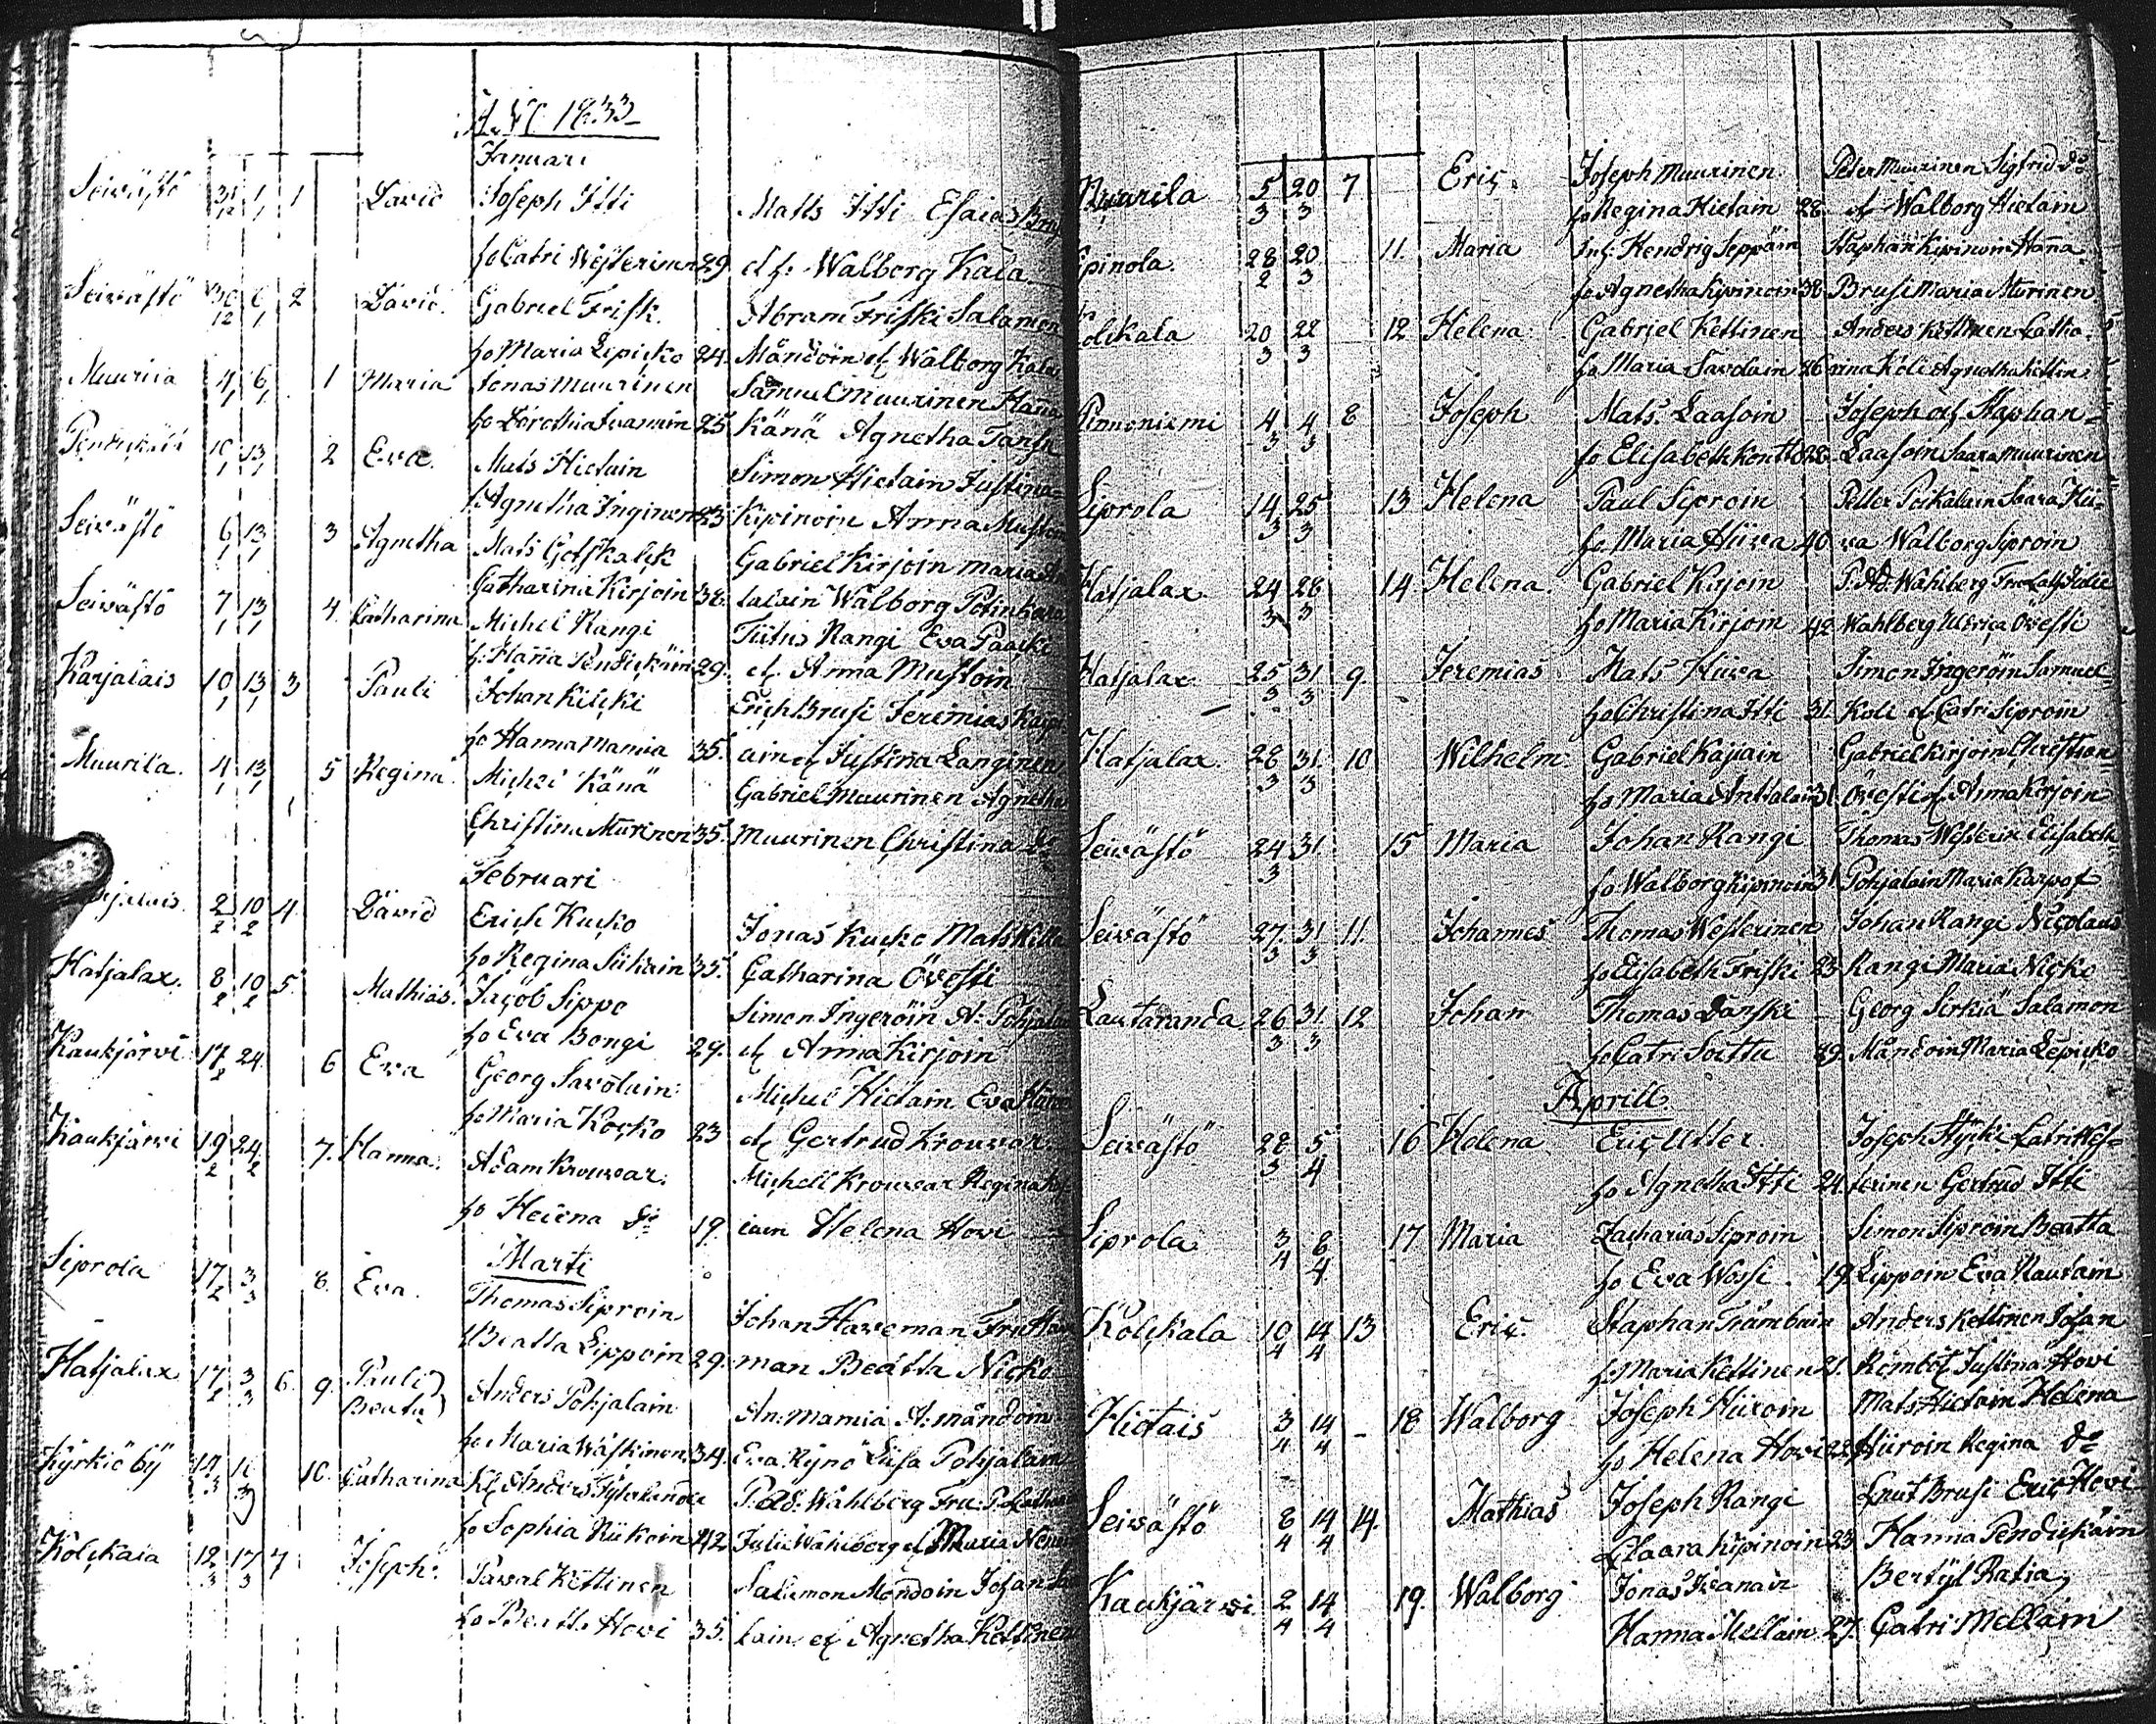 A:o 1833
Januari
Seivästö 31/12 1/1 1 David Joseph Itti Matts Itti Esaias
fo Catri Westerinen 29 & Walborg Kala
Seivästö 30/12 6/1 2 David. Gabriel Frisk. Abram Friski Salamon
fo Maria Lepicko 24. Mändoin & Walborg Kala
Muurila 4/1 6/1 1 Maria Jonas Muurinen Samuel Muurinen Hanna
fo Dorothia Ivanain 25 Känä Agnetha
10/1 13/1 2 Eva Mats Hietain Simon Hietain Justina
Agnetha Inginen 23 Kipinoin Anna
Seivästö 6/1 13/1 3 Agnetha Mats Gotskalck Gabriel Kirjoin Maria
Catharina Kirjoin 38 lalain Walborg
Seivästö 7/1 13/1 4. Catharina Michel Rangi Tiitus Rangi Eva Paacki
f: Hanna Pendickäin 29. & Anna Mustoin
Karjalais 10/1 13/1 3 Pauli Johan Kilcki Erich Brusi Jeremias
fo Hanna Mamia 35. ain & Justina Langinen
Muurila. 4/1 13/1 5 Regina Michel Känä Gabriel Muurinen Agnetha
Christina Murinen 35. Muurinen Christina do
Februari
2/2 10/2 4 David Erich Kucko Jonas Kucko Mats
fo Regina Siikain 35. Catharina Övesti
Hatjalax. 8/2 10/2 5. Mathias. Jacob Sippo Simon Ingeröin A: Pohjalain
fo Eva Bongi 29. & Anna Kirjoin
Kaukjärvi 17/2 24. 6 Eva Georg Savolain Michel Hietain Eva
fo Maria Kocko 23 & Gertrud Krouvar
Kaukjärvi 19/2 24/2 7. Hanna. Adam Krouwar. Michell Krouwar Regina
fo Helena do 19. iain Helena Hovi
Marti
Siprola 17/2 3/3 8. Eva. Thomas Siproin Johan Haveman Fru
Beatta Lippoin 29. man Beatta Nicko
Hatjalax 17/2 3/3 6. 9. Pauli Beata Anders Pohjalain An: Mamia A: Mändoin
fo Maria Wäskinen 34. Eva Kynö Lisa Pohjalain
Kyrkio by 10. Catharina Kl Anders P. Ad. Wahlberg Fru
fo Sophia Riikoin 42 Julie Wahlberg & Maria
Kolckala 12/3 17/3 7 Joseph. Pawal Kettinen Salamon Mondoin Johan
fo Beatta Hovi 35. lain & Agnetha Kettinen
Muurila 5/3 20/3 7 Eric. Joseph Muurinen Peter Muurinen Sigfrid do
fo Regina Hietain 28. & Walborg Hietain
28/2 20/3 11. Maria Inh. Hendrig Seppäin Staphan Kipinoin Hanna
fo Agnetha Kipinoin 38 Brusi Maria Murinen
20/3 22/3 12 Helena Gabriel Kettinen Anders Kettinen Catha-
fo Maria Savolain 26 rina Koli Agnetha Kettin.
4/3 4/3 8 Joseph Mats. Laasoin Joseph & Staphan
fo Elisabeth Kontto 28 Laasoin Saara Muurinen
Siprola 14/3 25/3 13 Helena Paul Siproin Petter Poikalain Saara Hii-
fo Maria Hiiva 40 va Walborg Siproin
Hatjalax 24/3 28/3 14 Helena. Gabriel Kirjoin P. Ad. Wahlberg Julie
fo Maria Kirjoin 42 Wahlberg Ulrica Övesti
Hatjalax 25/3 31/3 9. Jeremias Mats Hiiva Simon Ingeröin Samuel
fo Christina Itti 31. Koli & Catri Siproin
Hatjalax 28/3 31/3 10 Wilhelm Gabriel Kajain Gabriel Kirjoin Christian
fo Maria Antalain 31 Övesti & Anna Kirjoin
Seivästö 24/3 31 15 Maria Johan Rangi Thomas Westerin Elisabeth
fo Walborg Kipinoin 31 Pohjalain Maria
Seivästö 27/3 31/3 11. Johannes Thomas Westerinen Johan Rangi Nicolaus
fo Elisabeth Friski 23 Rangi Maria Nicko
Lautaranda 26/3 31/3 12 Johan Thomas Danski Georg Sirkiä Salamon
fo Catri Soittu 29. Mändoin Maria Lepicko
Aprill
Seivästö 28/3 5/4 16 Helena Eric Utter. Joseph Hycki Catri Wes-
fo Agnetha Itti 24 terinen Gertrud Itti
Siprola 3/4 8/4 17 Maria Zacharias Siproin Simon Siproin Beatta
fo Eva Wossi 19. Lippoin Eva Nautain
Kolckala 10/4 14/4 13 Eric. Staphan Trämbäin Anders Kettinen Johan
fo Maria Kettinen 21. Rembot Justina Hovi
Hietais 3/4 14/4 18 Walborg Joseph Hiiroin Mats Hietain Helena
fo Helena Hovi 22 Hiiroin Regina do
Seivästö 8/4 14/4 14. Mathias Joseph Rangi Knut Brusi Eric Hovi
Claara Kipinoin 23 Hanna Pendickäin
Kaukjärvi 2/4 14/4 19. Walborg Jonas Ivanain Bertyl Ratia,
Hanna Mellain 27. Catri Mellain